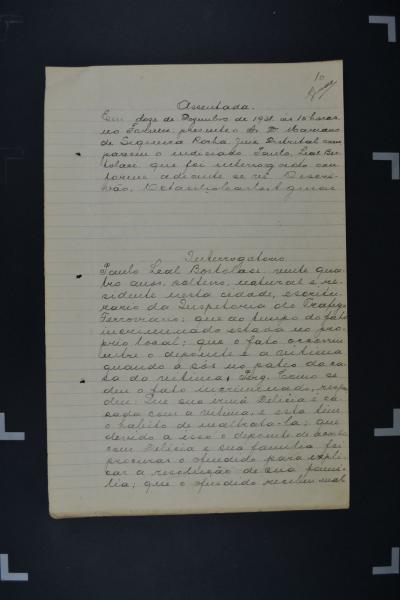 10
Assentada.
Em doze de Dezembro de 1931 às 15 horas,
no Forum, presente o Sr. Dr. Mariano
de Siqueira Rocha, Juiz Districtal com
pareceu o indiciado Paulo Leal Bor
tolasi que foi interrogado con
forme adiante se vê. Do
Interrogatorio
Paulo Leal Bortolasi, vinte qua
tro anos, solteiro, natural e re
sidente nesta cidade, escritu
rario da Inspetoria do Trafego
Ferroviario; que ao tempo do fato
incriminado estava no pro
prio local; que o fato ocorreu
entre o depoente e a vitima
quando a sós no pateo da ca
sa da vitima; Perg. Como se
deu o fato incriminado, respon
deu: Que sua irmã Delicia é ca
sada com a vitima, e esta tem
o habito de maltrata-la; que
devido a isso o depoente de acordo
com Delicia e sua familia foi
procurar o ofendido para expli
car a resolução de sua fami
lia; que o ofendido recebeu mal